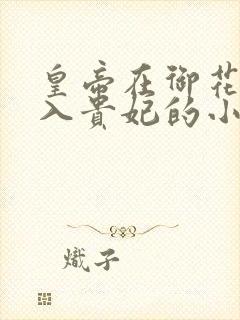 皇帝在御花
入贵妃的小
熾子